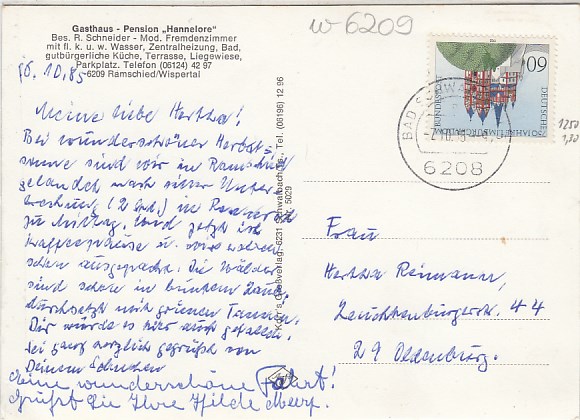 w-6209
Gasthaus - Pension „Hannelore"
Bes. R. Schneider - Mod. Fremdenzimmer
mit fl. k. u. w. Wasser, Zentralheizung, Bad,
gutbürgerliche Küche, Terrasse, Liegewiese,
Parkplatz. Telefon (06124) 42 97
6209 Ramschied/Wispertal
6.10.85
Meine liebe Hertha!
Bei wunderschöner Herbst-
sonne sind wir in Ramschied
gelandet nach einer Unter
brechung (2 Std.) in
zu Mittag. Und jetzt ist
Kaffeepause u.
schon ausgepackt. Die Wälder
sind schon in buntem Laub,
durchsetzt mit grünen Tannen.
Dir würde es hier auch gefallen.
Sei ganz herzlich gegrüßt von
Deinem
Eine wunderschöne Fahrt!
Grüßt Sie Ihre Hilde
Verlag, 6231 Schwalbach Ts., Tel. (06196) 12 96
Nr. 5029
90
DEUTSCHE BUNDESPOST
BAD SCHWALBACH
6208
1250
1,30
Frau
Hertha Reimann,
44
29 Oldenburg.